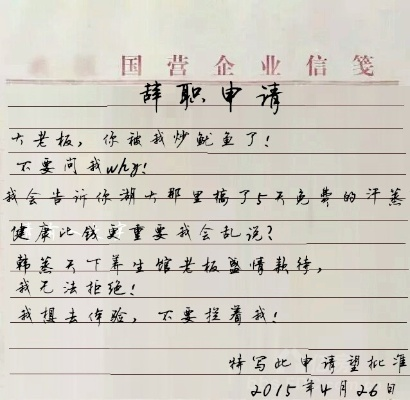 国营企业信笺
辞职申请
大老板，你被我炒鱿鱼了！
不要问我why！
我会告诉你湖大那里搞了5天免费的汗蒸
健康比钱更重要我会乱说？
韩蒸天下养生馆老板盛情款待，
我无法拒绝！
我想去体验，不要拦着我！
特写此申请望批准
2015年4月26日